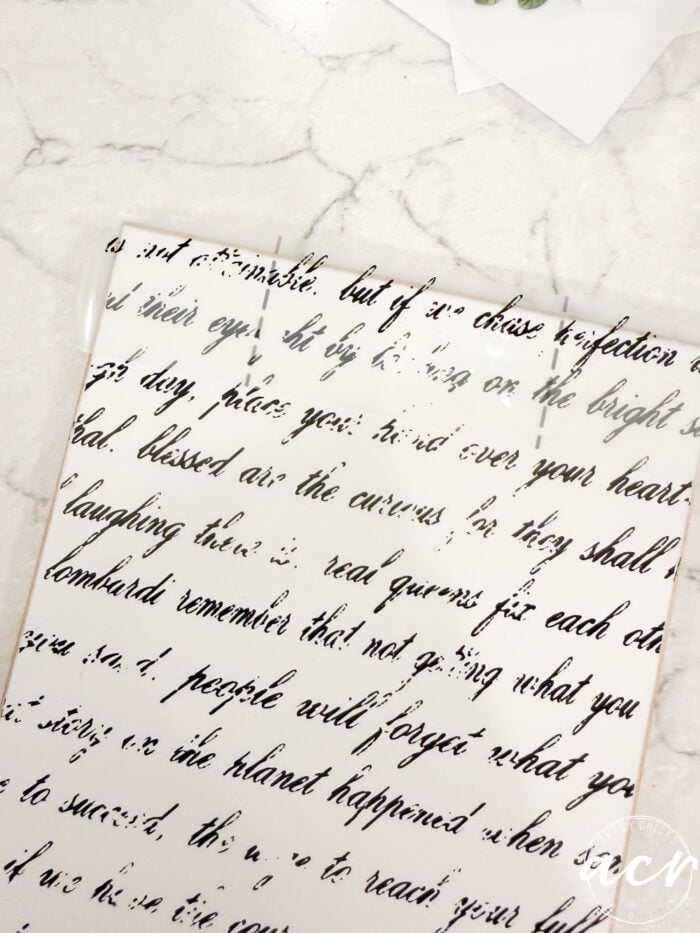 is not attainable. but if we chase perfection w
their eyes ht by looking on the bright s
day, place your hand over your heart-
that. blessed are the curious for they shall h
laughing there is. real queens fix each oth
lombardi remember that not getting what you
said. people will forget what you
story on the planet happened when som
to succeed, the urge to reach your full
if we have the cour
acr